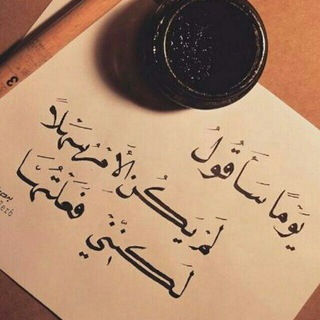 يَوْمًا سَأَقُولُ
لَمْ يَكُنِ الأَمْرُ سَهْلاً
لَكِنَّنِي فَعَلْتُهَا